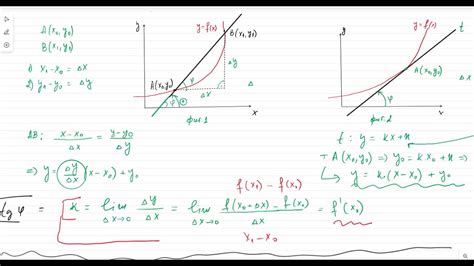 A(x₀, y₀)
B(x₁, y₁)
1) x₁ - x₀ = Δx
2) y₁ - y₀ = Δy
y
y = f(x)
B(x₁, y₁)
Δy
A(x₀, y₀)
φ
Δx
x
фиг.1
Δ
y
f(x)
t
A(x₀, y₀)
φ
Δ
x
фиг.2
AB: (x - x₀)/Δx = (y - y₀)/Δy
⇒ y = (Δy/Δx)(x - x₀) + y₀
t: y = kx + n
A(x₀, y₀) ⇒ y₀ = kx₀ + n ⇒
y = k.(x - x₀) + y₀
f(x₁) - f(x₀)
tg φ = k = lim Δx→0 Δy/Δx = lim Δx→0 (f(x₀ + Δx) - f(x₀))/Δx = f'(x₀)
x₁ - x₀